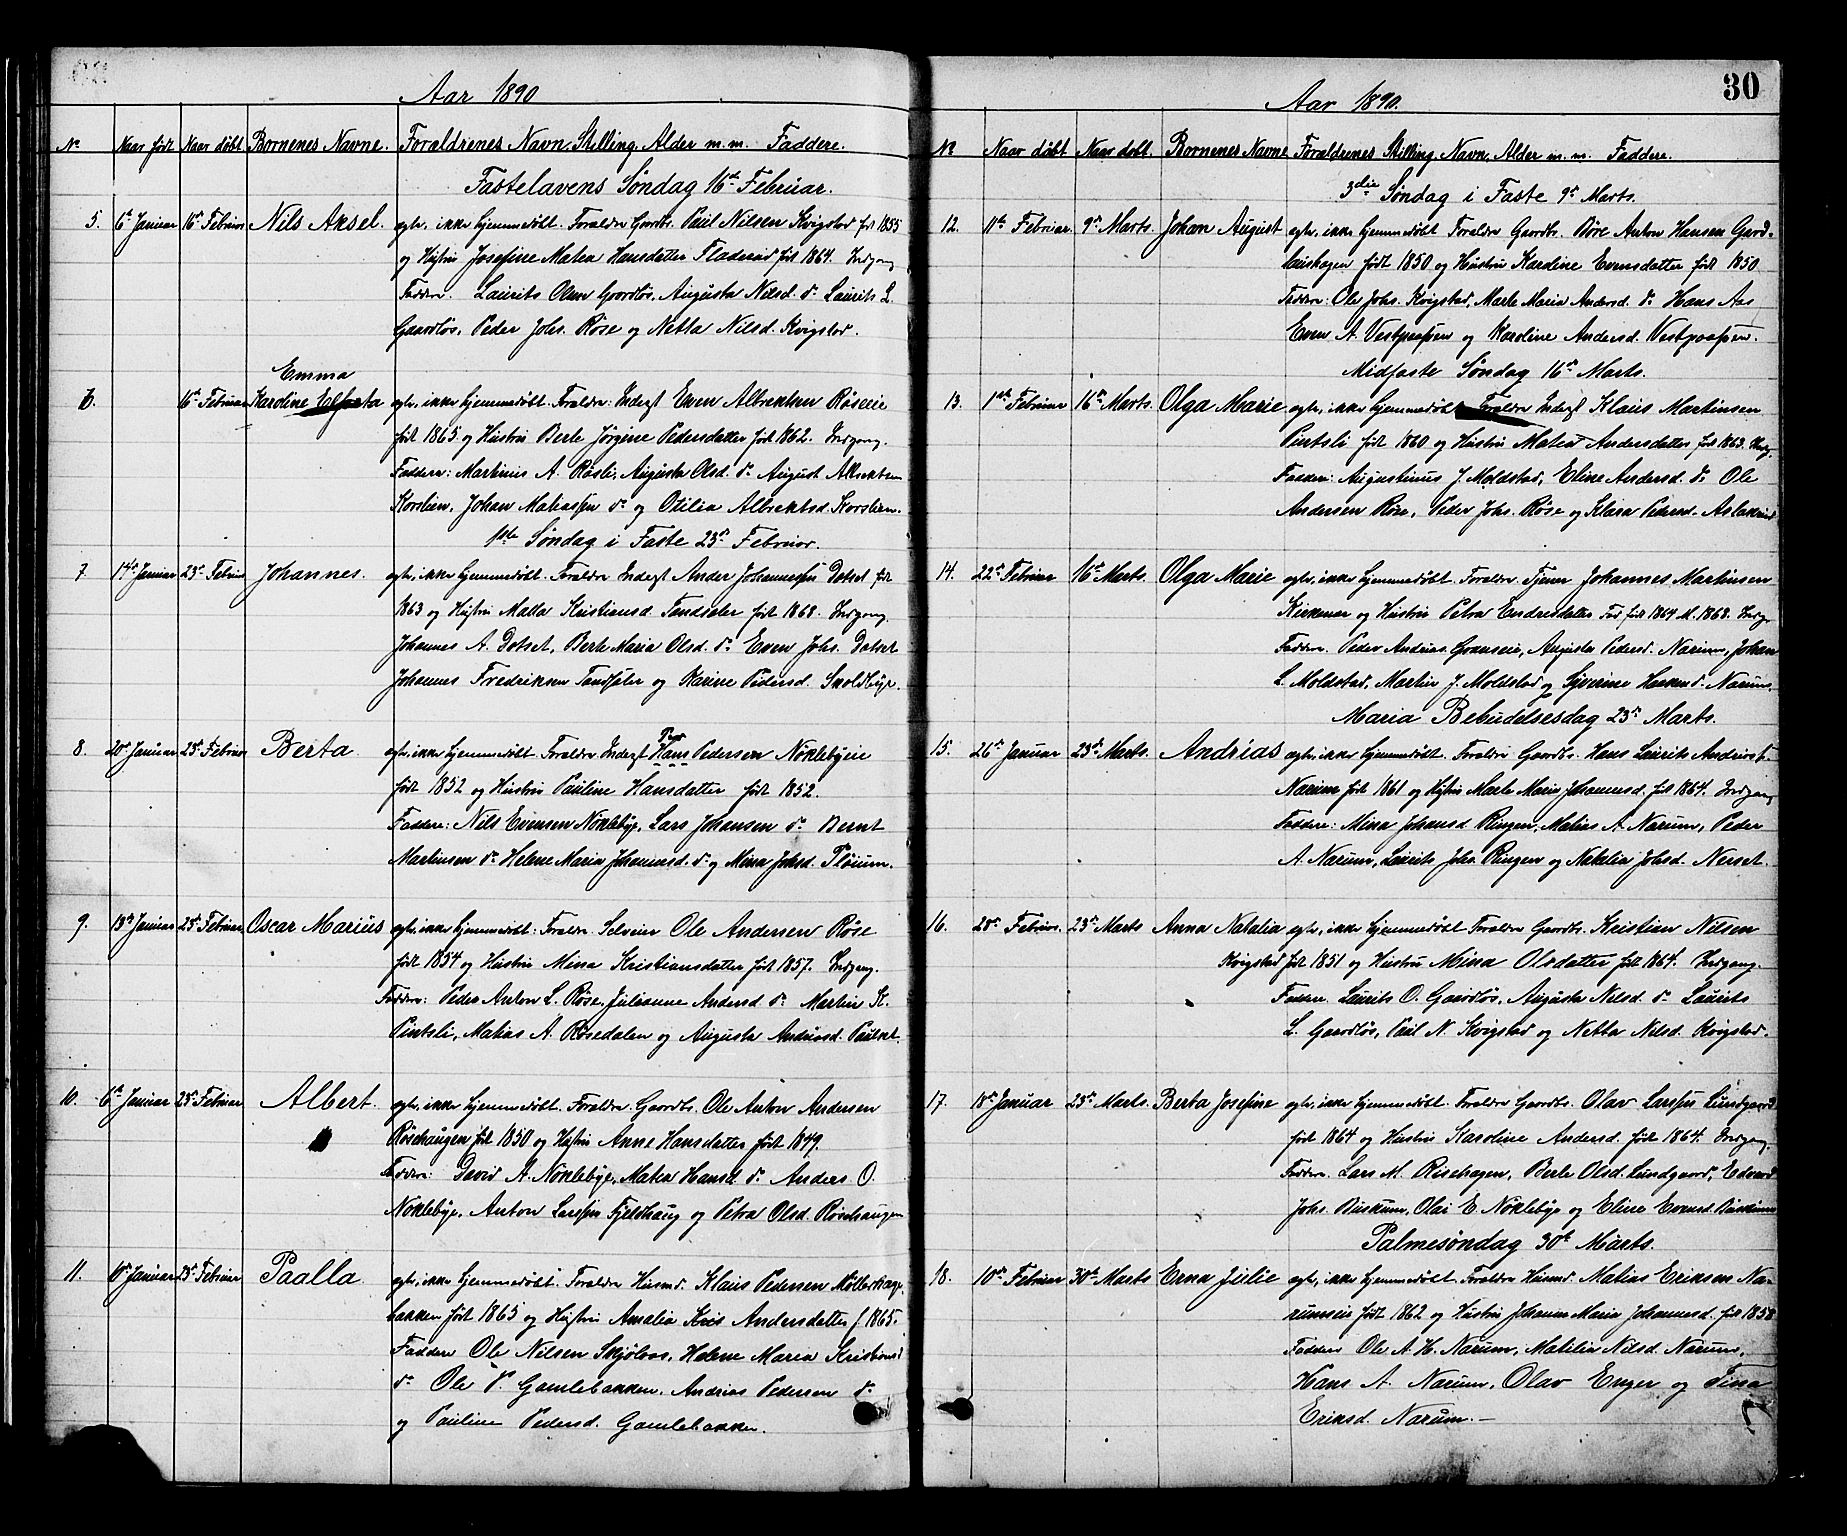 Aar 1890
No Naar født Naar døbt Børnenes Navne. Forældrenes Navn, Stilling, Alder m.m. Faddere.
Fastelavens Søndag 16de Februar.
5. 6te Januar 16de Februar Nils Aksel. egte, ikke hjemmedøbt Forældre Gaardbr. Paul Nilsen Kvigstad født 1855
og Hustru Josefine Matea Hansdatter født 1864. Indgang
Faddere. Laurits Olsen Gaardløs, Augusta Nilsd. do Laurits L.
Gaardløs, Peder Johs. Røse og Netta Nilsd. Kvigstad.
Emma
6. 16de Februar Karoline egte, ikke hjemmedøbt. Forældre: Inderst Even Albrektsen Røseeie
født 1865 og Hustru Berte Jørgine Pedersdatter født 1862. Indgang.
Faddere: Martinus A. Røsli, Augusta Olsd. do August Albrektsen
Korslien, Johan Matiassen do og Otilia Albrektsd. Korslien.
1ste Søndag i Faste 23de Februar.
7. 14de Januar 23de Februar Johannes. egte, ikke hjemmedøbt. Forældre Inderst Anders Johannessen Dotset født
1863 og Hustru Malla Kristiansd. født 1868. Indgang.
Johannes A. Dotset, Berte Maria Olsd. do Even Johs. Dotset
Johannes Fredriksen og Karine Pedersd.
8. 20de Januar 23de Februar Berta egte, ikke hjemmedøbt Forældre Inderst Hans Pedersen Nøklebyeie
født 1852 og Hustru Pauline Hansdatter født 1852.
Faddere: Nils Evensen Nøklebye, Lars Johansen do Bernt
Martinsen do Helene Maria Johannesd. do og Mina Johsd.
9. Januar 23de Februar Oscar Marius egte, ikke hjemmedøbt. Forældre Selveier Ole Andersen Røse
født 1854 og Hustru Mina Kristiansdatter født 1857. Indgang.
Faddere: Peder Anton L. Røse, Julianne Andersd. do Martin K.
Pintsli, Matias A. Røsedalen og Augusta Andersd. Paulset.
10. 6te Januar 23de Februar Albert. egte, ikke hjemmedøbt. Forældre Gaardbr. Ole Anton Andersen
Røsehaugen født 1850 og Hustru Anne Hansdatter født 1849.
Faddere: David A. Nøklebye, Matea Hansd. do Anders O.
Nøklebye, Anton Larssen Fjeldhaug og Petra Olsd. Røsehaugen
11. 10de Januar 23de Februar Paalla. egte, ikke hjemmedøbt. Forældre Husmd. Klaus Pedersen
bakken født 1865 og Hustru Amalia Andersdatter f. 1865.
Faddere Ole Nilsen Helene Maria Kristiansd.
do Ole P. Gamlebakken, Andrias Pedersen do
og Pauline Pedersd. Gamlebakken.
30
Aar 1890.
No Naar døbt Naar døbt. Børnenes Navne Forældrenes Stilling, Navn, Alder m.m. Faddere.
3die Søndag i Faste 9de Marts.
12. 11te Februar 9de Marts. Johan August egte, ikke hjemmedøbt Forældre Gaardbr. Børe Anton Hansen Gard-
født 1850 og Hustru Karoline Evensdatter født 1850
Faddere: Ole Johs. Kvigstad, Marte Maria Andersd. do Hans Aas
Even A. og Karoline Andersd.
Midfaste Søndag 16de Marts.
13. 1ste Februar 16de Marts. Olga Marie egte, ikke hjemmedøbt Forældre Inderst Klaus Martinsen
Pintsli født 1860 og Hustru Matea Andersdatter født 1863. Indg.
Faddere: Augustinus J. Moldstad, Eline Andersd. do Ole
Andersen Røse, Peder Johs. Røse og Klara Pedersd.
14. 22de Februar 16de Marts. Olga Marie egte, ikke hjemmedøbt. Forældre Tjener Johannes Martinsen
og Hustru Petra Endresdatter Fad. født 1864 M. 1868. Indg.
Faddere. Peder Andrias. Augusta Pedersd. Narum, Johan
L. Moldstad, Martin J. Moldstad og Syverine Narum.
Maria Bebudelsesdag 23de Marts.
15. 26de Januar 23de Marts. Andrias egte, ikke hjemmedøbt. Forældre Gaardbr. Hans Laurits
Narum født 1861 og Hustru Marte Maria Johannesd. født 1864. Indgang
Faddere: Mina Johansd. Ringen, Matias A. Narum, Peder
A. Narum, Laurits Johs. Ringen og Natalia Johsd. Nerset.
16. 20de Februar. 23de Marts Anna Natalia egte, ikke hjemmedøbt Forældre Gaardbr. Kristian Nilsen
Kvigstad født 1851 og Hustru Mina Olsdatter født 1864. Indgang.
Faddere. Laurits O. Gaardløs, Augusta Nilsd. do Laurits
L. Gaardløs, Paul N. Kvigstad og Netta Nilsd. Kvigstad.
17. 18de Januar 23de Marts. Berta Josefine egte, ikke hjemmedøbt. Forældre Gaardbr. Olav Larssen Lundgaard
født 1864 og Hustru Karoline Andersd. født 1864. Indgang.
Faddere. Lars M. Risehagen, Berte Olsd. Lundgaard, Edvard
Johs. Biskum, Olai E. Nøklebye og Eline Evensd. Biskum
Palmesøndag 30te Marts.
18. 10de Februar 30te Marts Erna Julie egte, ikke hjemmedøbt. Forældre Husmd. Matias Eriksen Na-
rumseie født 1862 og Hustru Johanne Maria Johannesd. født 1858
Faddere Ole A. H. Narum, Matilia Nilsd. Narum,
Hans A. Narum, Olav Enger og Tina
Eriksd. Narum.—